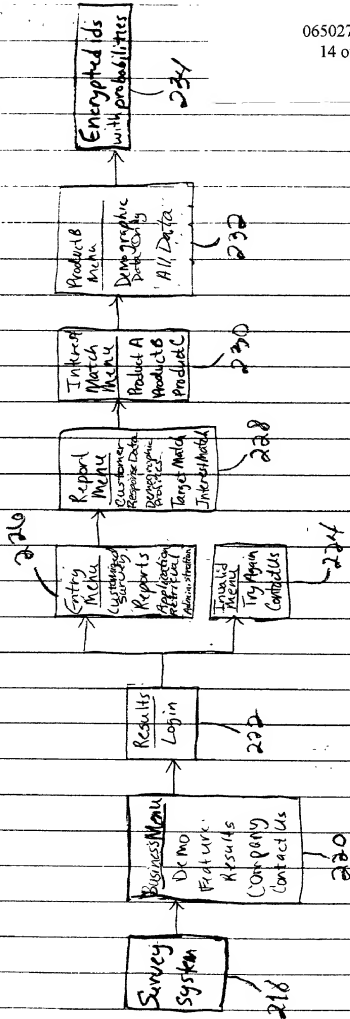 065027
14 o
Survey
System
218
Business Menu
Demo
Feature
Results
Company
Contact Us
220
Results
Login
222
226
Entry
Menu
Customized
Survey
Reports
Application
Retrieval
Administration
Invalid
Menu
Try Again
Contact Us
224
Report
Menu
Customer
Response Data
Demographic
Profiles
Target Match
Interest Match
228
Interest
Match
Menu
Product A
Product B
Product C
230
Product B
Menu
Demographic
Data Only
All Data
232
Encrypted ids
with probabilities
234